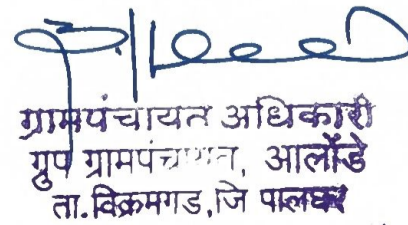 ग्रामपंचायत अधिकारी
ग्रुप ग्रामपंचायत, आलोंडे
ता.विक्रमगड,जि पालघर